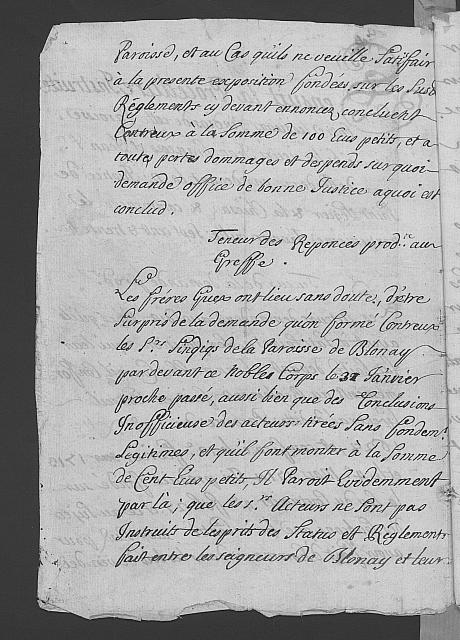 Paroisse, et au Cas qu'ils ne veuille Satiffair
à la presente exposition fondées, sur les Susd
Règlements cy devant ennoncer, concluent
Contreux à la Somme de 100 Ecus petits, et a
toutes pertes dommages et despends surquoi
demande office de bonne Justice aquoi est
conclud.
Teneur des Reponces prod.te au
Greffe.
Les fréres Guex ont lieu sans doute, d'etre
Surpris de la demande qu'on formé Contreux
les S.rs Sindiqs de la Paroisse de Blonay
par devant ce Nobles Corps le 31 Janvier
proche passé, aussi lien que des Conclusions
Inofficieuse des acteurs tirées Sans fondem.t
Legitimes, et qu'il font monter à la Somme
de Cent Ecus petits, Il Paroit Evidemment
par la; que les S.rs Acteurs ne Sont pas
Instruits de lesprits des Status et Règlement
fait entre les seigneurs de Blonay et leur